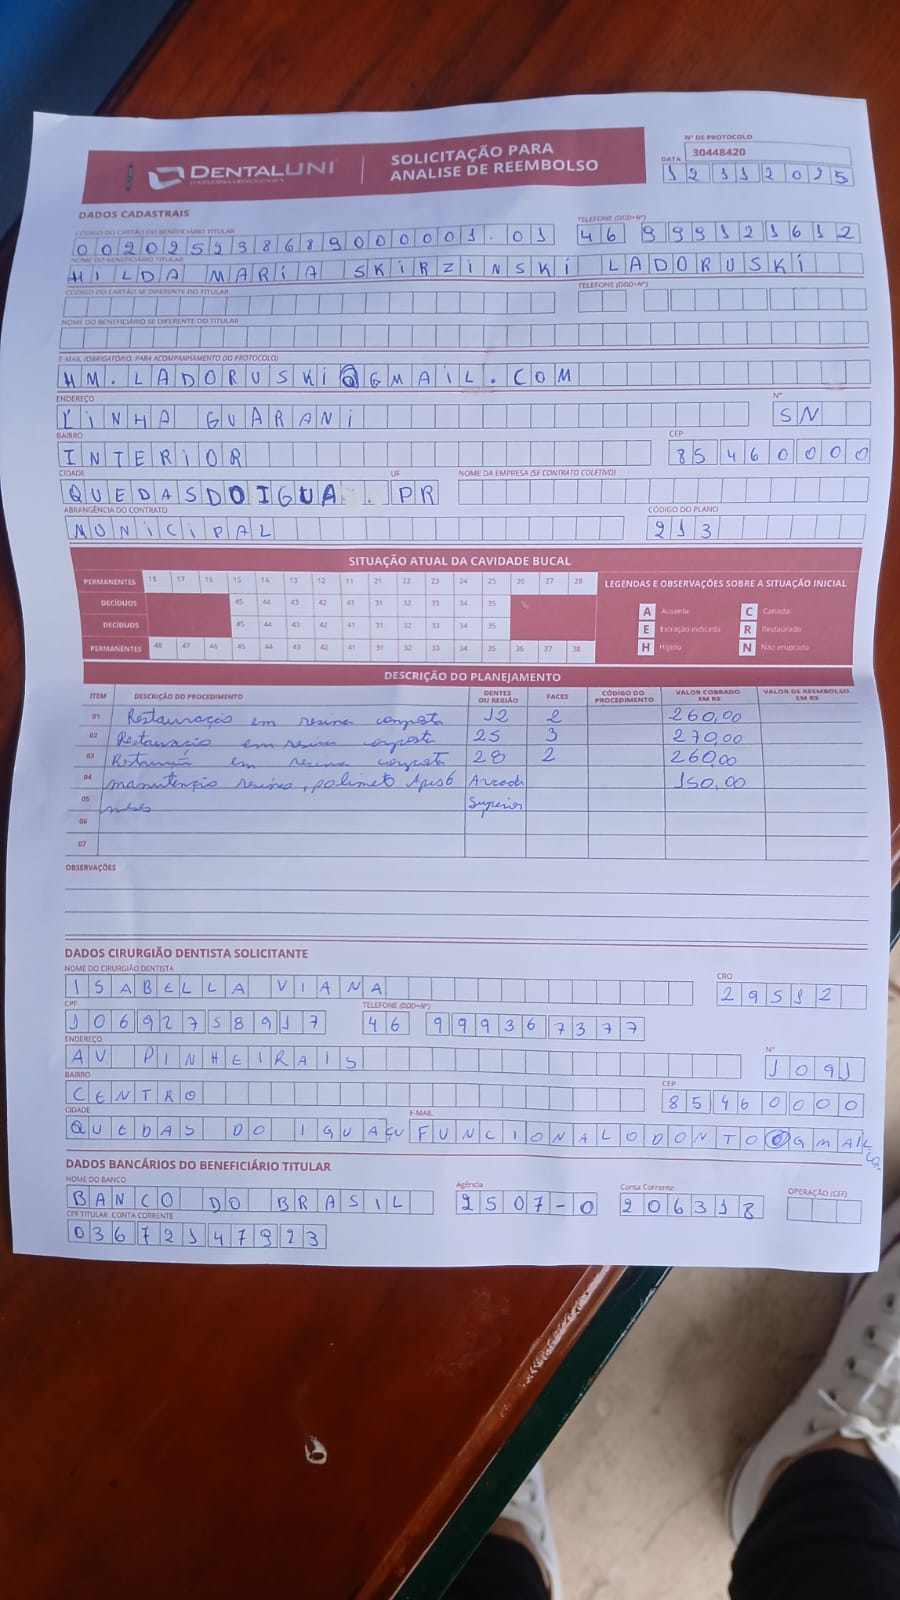 DENTALUNI
SOLICITAÇÃO PARA
ANALISE DE REEMBOLSO
Nº DE PROTOCOLO
30448420
DATA
12112025
DADOS CADASTRAIS
CÓDIGO DO CARTÃO DO BENEFICIÁRIO TITULAR TELEFONE (DDD+Nº)
002025238689000001.01 46 999121612
NOME DO BENEFICIÁRIO TITULAR
HILDA MARIA SKIRZINSKI LADORUSKI
CÓDIGO DO CARTÃO SE DIFERENTE DO TITULAR TELEFONE (DDD+Nº)
NOME DO BENEFICIÁRIO SE DIFERENTE DO TITULAR
E-MAIL (OBRIGATÓRIO, PARA ACOMPANHAMENTO DO PROTOCOLO)
HM.LADORUSKI@GMAIL.COM
ENDEREÇO Nº
LINHA GUARANI SN
BAIRRO CEP
INTERIOR 85460000
CIDADE UF NOME DA EMPRESA (SE CONTRATO COLETIVO)
QUEDASDOIGUA. PR
ABRANGÊNCIA DO CONTRATO CÓDIGO DO PLANO
MUNICIPAL 213
SITUAÇÃO ATUAL DA CAVIDADE BUCAL
PERMANENTES 18 17 16 15 14 13 12 11 21 22 23 24 25 26 27 28
DECÍDUOS 45 44 43 42 41 31 32 33 34 35
DECÍDUOS 45 44 43 42 41 31 32 33 34 35
PERMANENTES 48 47 46 45 44 43 42 41 31 32 33 34 35 36 37 38
LEGENDAS E OBSERVAÇÕES SOBRE A SITUAÇÃO INICIAL
A Ausente C Cariado
E Extração indicada R Restaurado
H Hígido N Não erupcionado
DESCRIÇÃO DO PLANEJAMENTO
ITEM DESCRIÇÃO DO PROCEDIMENTO DENTES OU REGIÃO FACES CÓDIGO DO PROCEDIMENTO VALOR COBRADO EM R$ VALOR DE REEMBOLSO EM R$
01 Restauração em resina composta 12 2 260,00
02 Restauracio em resina composta 25 3 270,00
03 Restauração em resina composta 28 2 260,00
04 manutenção resinas, polimeto Apos 6 Arcada 150,00
05 meses Superior
06
07
OBSERVAÇÕES
DADOS CIRURGIÃO DENTISTA SOLICITANTE
NOME DO CIRURGIÃO DENTISTA CRO
ISABELLA VIANA 29512
CPF TELEFONE (DDD+Nº)
10692758917 46 999367377
ENDEREÇO Nº
AV PINHEIRAIS 1091
BAIRRO CEP
CENTRO 85460000
CIDADE E-MAIL
QUEDAS DO IGUAÇU FUNCIONALODONTO@GMAIL.COM
DADOS BANCÁRIOS DO BENEFICIÁRIO TITULAR
NOME DO BANCO Agência Conta Corrente OPERAÇÃO (CEF)
BANCO DO BRASIL 2507-0 206318
CPF TITULAR CONTA CORRENTE
03672147923